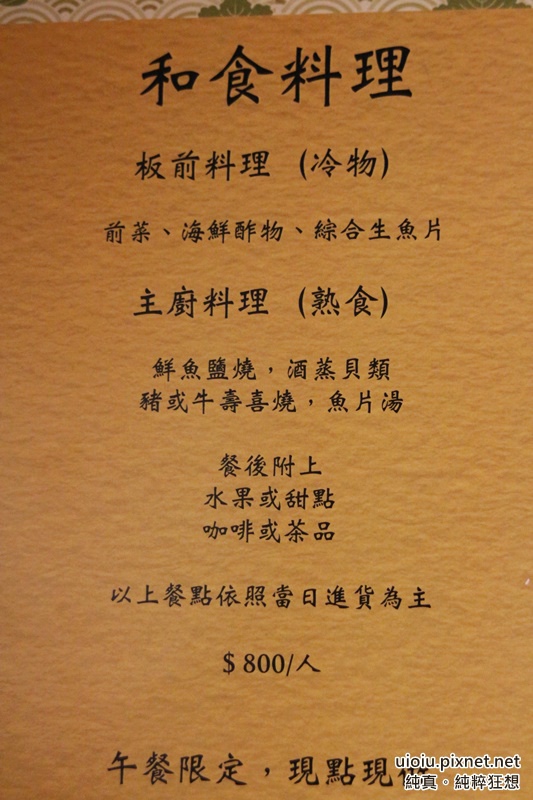 和食料理
板前料理 (冷物)
前菜、海鮮酢物、綜合生魚片
主廚料理 (熟食)
鮮魚鹽燒，酒蒸貝類
豬或牛壽喜燒，魚片湯
餐後附上
水果或甜點
咖啡或茶品
以上餐點依照當日進貨為主
$ 800/人
午餐限定，現點現
uioiu.pixnet.net
純真。純粹狂想